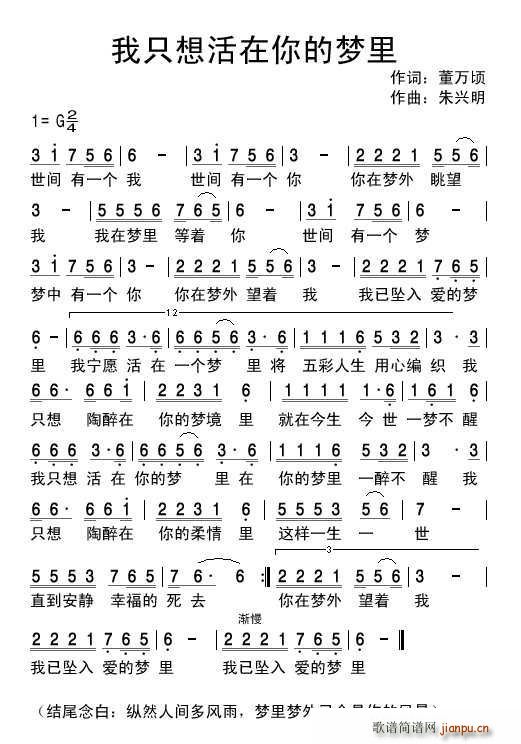 我只想活在你的梦里
作词：董万顷
作曲：朱兴明
1=G 2/4
3 i 7 5 6 | 6 - | 3 i 7 5 6 | 3 - | 2 2 2 1 5 5 6 |
世间 有一个 我 世间 有一个 你 你在梦外 眺望
3 - | 5 5 5 6 7 6 5 | 6 - | 3 i 7 5 6 | 6 - |
我 我在梦里 等着 你 世间 有一个 梦
3 i 7 5 6 | 3 - | 2 2 2 1 5 5 6 | 3 - | 2 2 2 1 7 6 5 |
梦中 有一个 你 你在梦外 望着 我 我已坠入 爱的梦
12
6 - | 6 6 6 3·6 | 6 6 5 6 | 3·6 | 1 1 1 6 5 3 2 | 3·3 |
里 我宁愿 活 在 一个 梦 里 将 五彩人生 用心编 织 我
6 6 6 6 i | 2 2 3 1 6 | 1 1 1 1 1·6 | 1 6 1 6 |
只想 陶醉在 你的梦境 里 就在今生 今 世 一梦不 醒
6 6 6 3·6 | 6 6 5 6 3·6 | 1 1 1 6 5 3 2 | 3·3 |
我只想 活 在 你的 梦 里 在 你的梦里 一醉不 醒 我
6 6 6 6 i | 2 2 3 1 6 | 5 5 5 3 5 6 | 7 - |
只想 陶醉在 你的柔情 里 这样一生 一 世
3
5 5 5 3 7 6 5 | 7 6· 6 :| 2 2 2 1 5 5 6 | 3 - |
直到安静 幸福的 死 去 你在梦外 望着 我
渐慢
2 2 2 1 7 6 5 | 6 - | 2 2 2 1 5 5 6 | 6 - ‖
我已坠入 爱的梦 里
（结尾念白：纵然人间多风雨，梦里梦外
歌谱简谱网
jianpu.cn